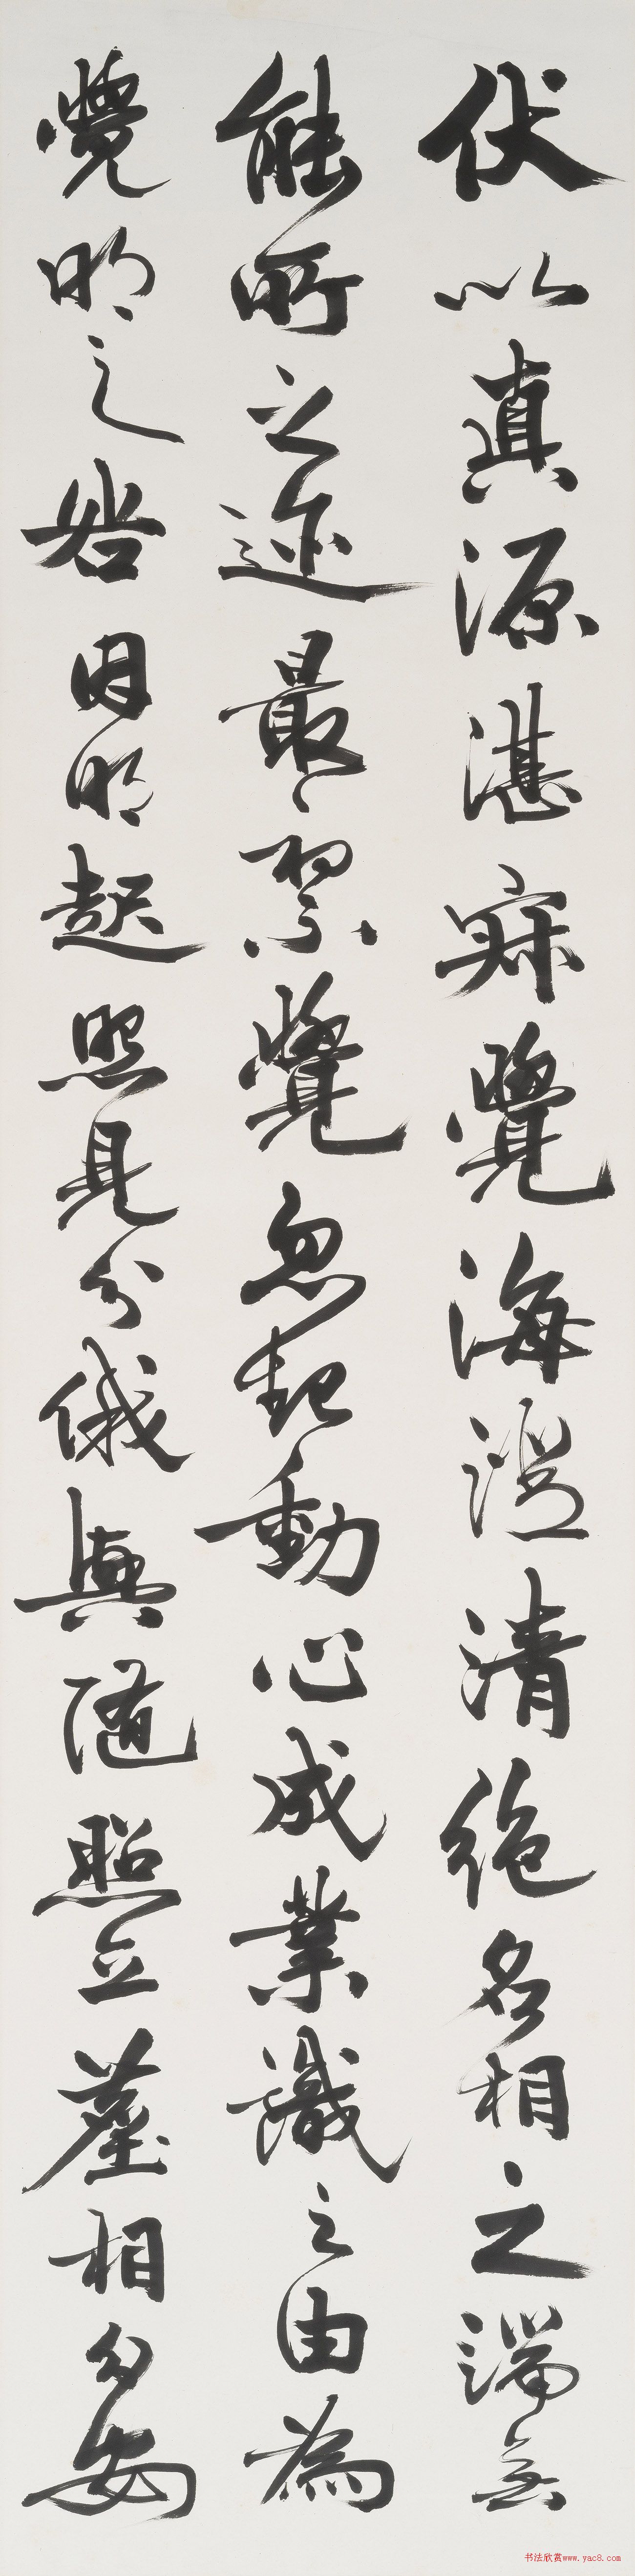 伏以真源湛寂覺海澄清絕名相之端無
能所之迹最初不覺忽起動心成業識之由為
覺明之咎因明起照見分俄興隨照立塵相分安
书法欣赏www.yac8.com